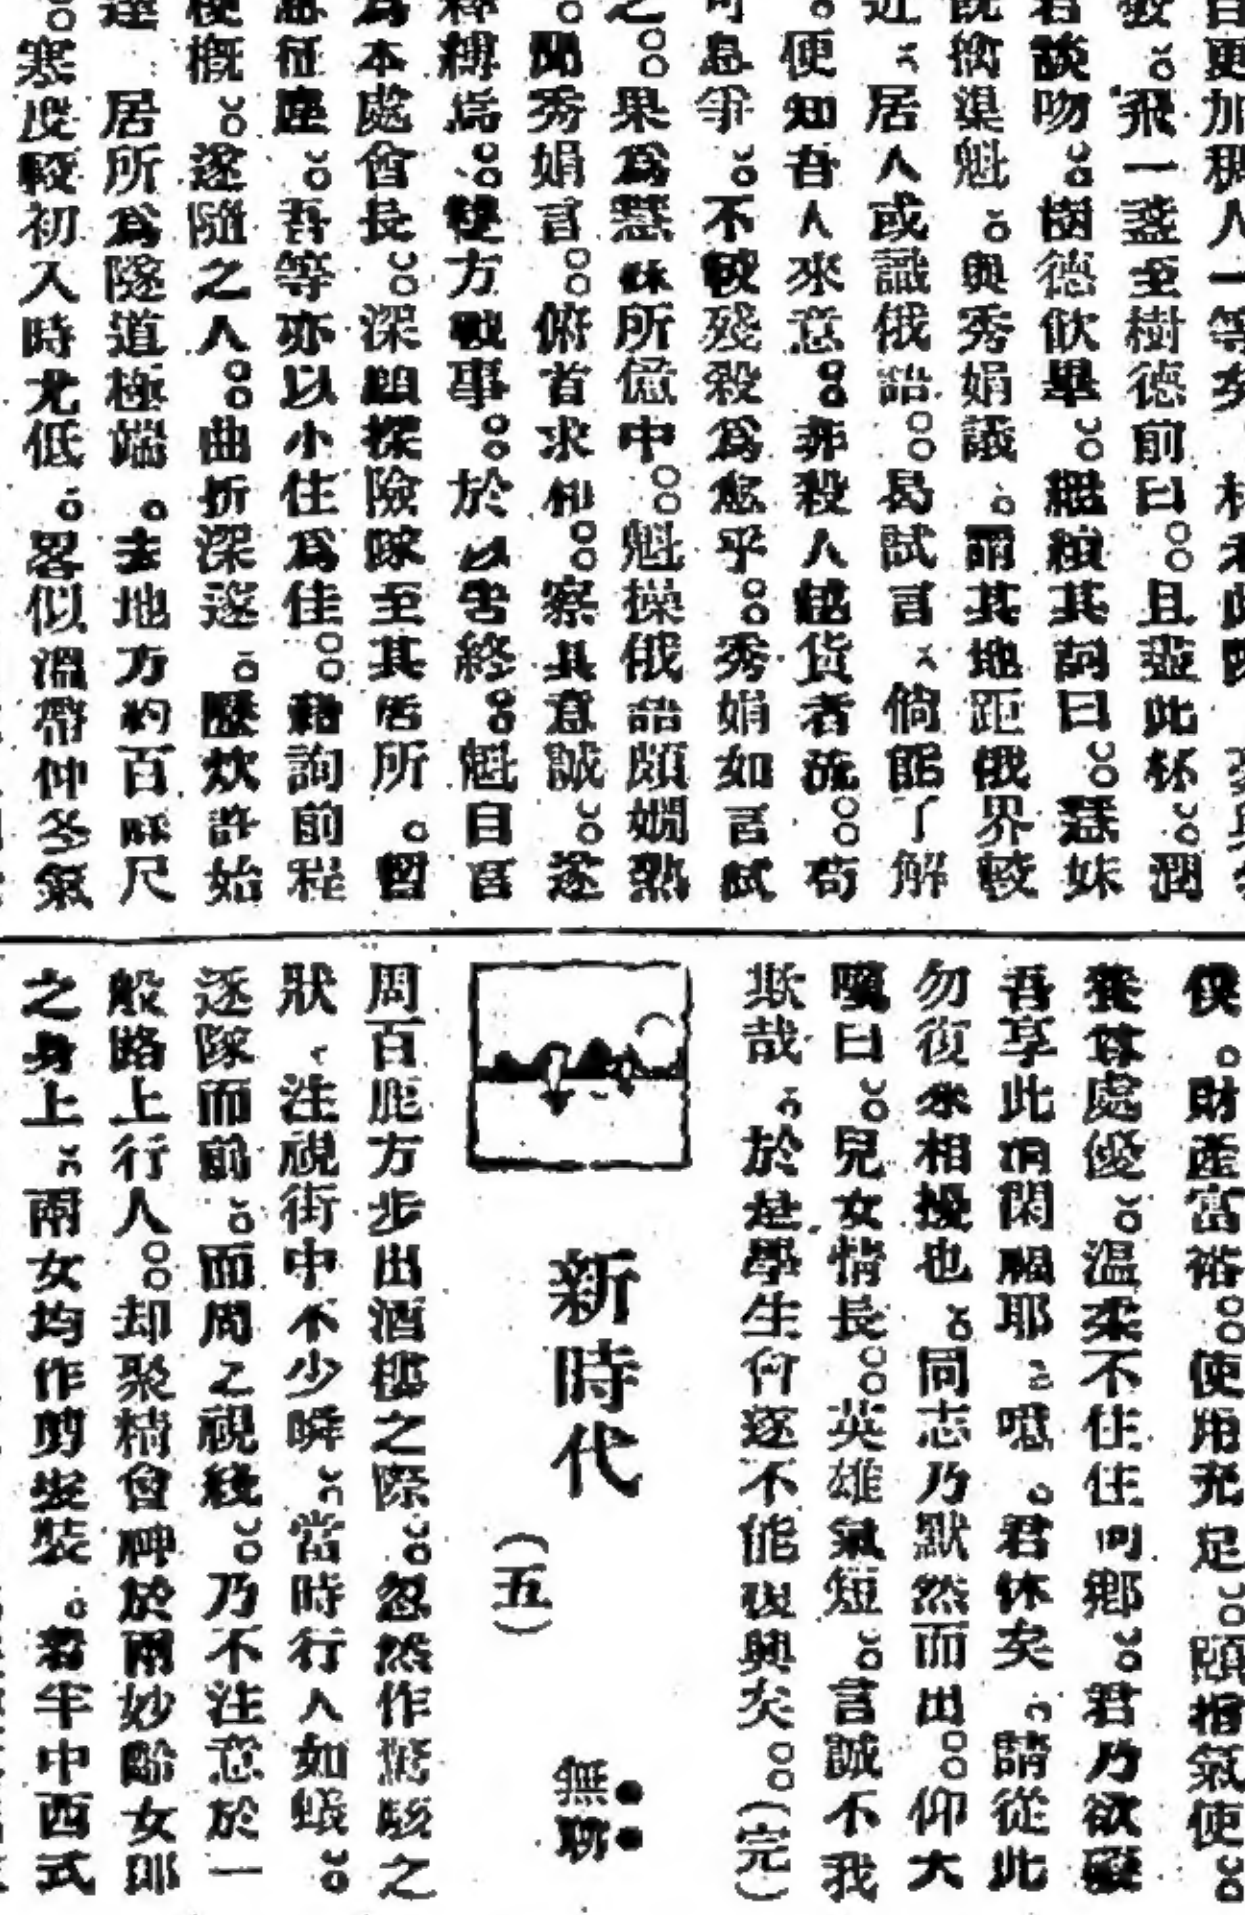 自更加稠人一等矣
飛一盞至樹德前曰。且盡此杯。潤
君談吻。樹德飲畢。繼續其詞曰。慧妹
既擒渠魁。與秀娟議。謂其地距俄界較
近、居人或識俄語。曷試言、倘能了解
。便知吾人來意。非殺人越貨者流。苟
可息爭。不較殘殺爲愈乎。秀娟如言試
之。果爲慧妹所億中。魁操俄語頗嫻熟
。聞秀娟言。俯首求和。察其意誠。遂
釋縛焉、雙方戰事。於以告終。魁自言
爲本處會長。深願探險隊至其居所。暫
息征塵。吾等亦以小住爲佳。藉詢前程
梗概。遂隨之入。曲折深邃。歷炊許始
達 居所爲隧道極端。去地方約百咪尺
。寒度較初入時尤低。畧似溫帶仲冬氣
僕。財產富裕。使用充足。頤指氣使。
養尊處優。溫柔不住住何鄉。君乃欲礙
吾享此清閑福耶。噫。君休矣。請從此
勿復來相擾也。同志乃默然而出。仰大
嘆曰。兒女情長。英雄氣短。言誠不我
欺哉。於是學生會遂不能復興矣。(完)
新時代
(五)
無聊
周百鹿方步出酒樓之際。忽然作驚駭之
狀、注視街中不少瞬。當時行人如蟻。
逐隊而前。而周之視綫。乃不注意於一
般路上行人。却聚精會神於兩妙齡女郎
之身上。兩女均作剪髮裝。着半中西式